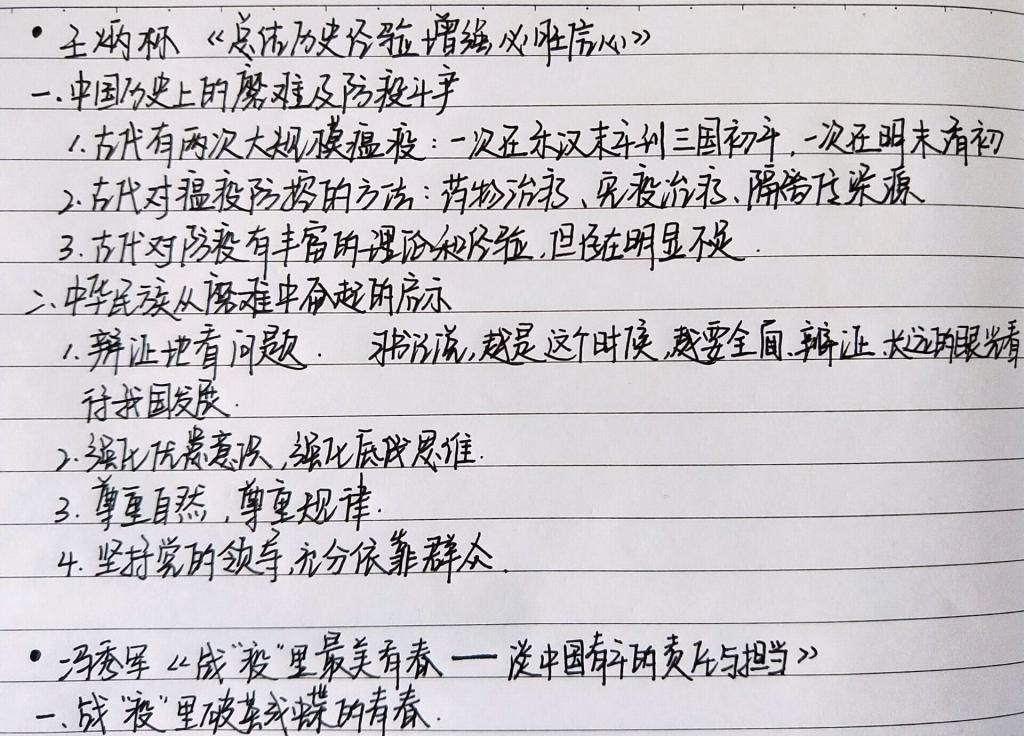 • 王炳林 《总结历史经验 增强必胜信心》
一.中国历史上的磨难及防疫斗争
1.古代有两次大规模瘟疫:一次在东汉末年到三国初年,一次在明末清初
2.古代对瘟疫防控的方法:药物治疗、免疫治疗、隔离传染源
3.古代对防疫有丰富的理论和经验,但存在明显不足.
二.中华民族从磨难中奋起的启示
1.辩证地看问题. 习总书记说,越是这个时候,越要全面、辩证、长远的眼光看
待我国发展.
2.强化忧患意识,强化底线思维.
3.尊重自然,尊重规律.
4.坚持党的领导,充分依靠群众.
• 冯秀军 《战"疫"里最美青春——谈中国青年的责任与担当》
一.战"疫"里破茧成蝶的青春.